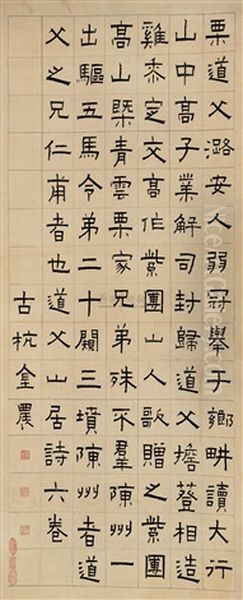 栗道父潞安人弱冠舉于鄉畊讀大行
山中高子業解司封歸道父擔簦相造
雞黍定交高作紫團山人歌贈之紫團
高山槩青雲栗家兄弟殊不羣陳州一
出驅五馬令弟二十闢三墳陳州者道
父之兄仁甫者也道父山居詩六卷
古杭金農